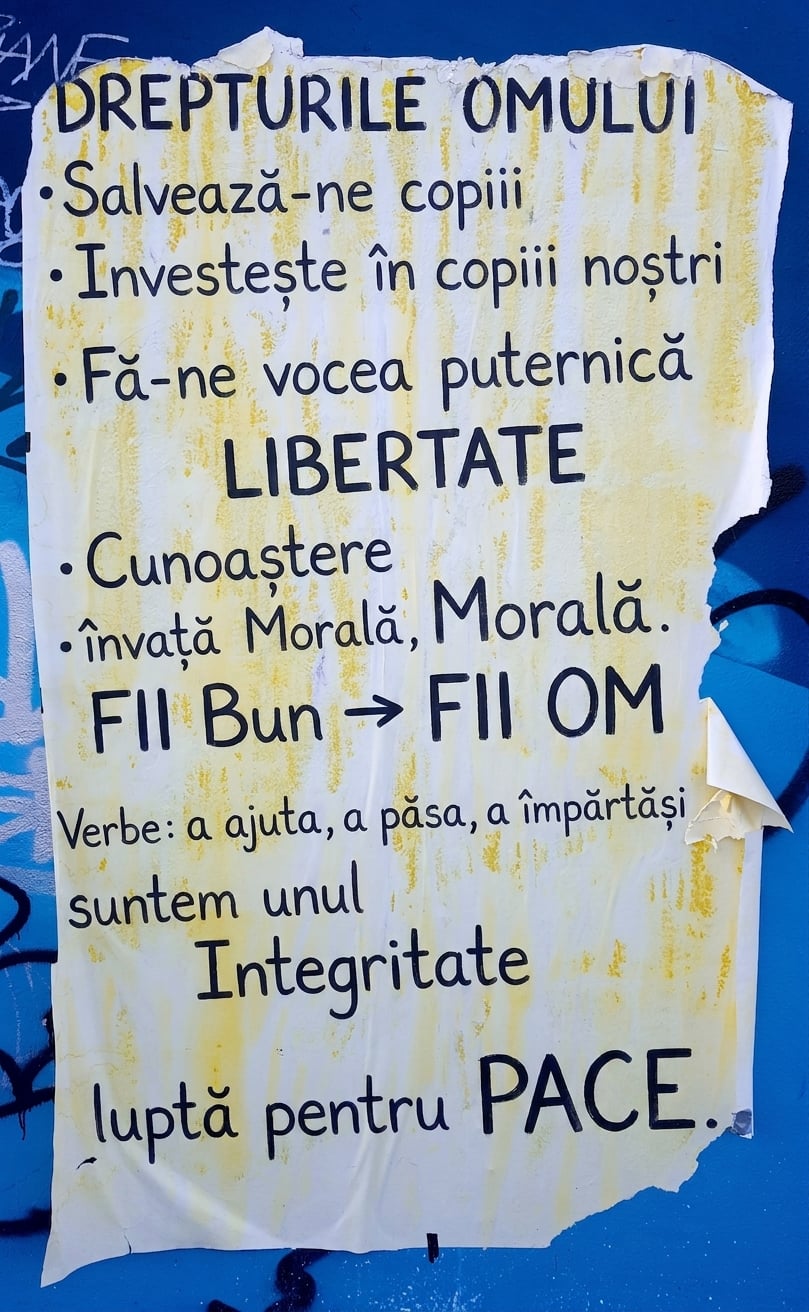 DREPTURILE OMULUI
• Salvează-ne copiii
• Investește în copiii noștri
• Fă-ne vocea puternică
LIBERTATE
• Cunoaștere
• învață Morală, Morală.
FII Bun → FII OM
Verbe: a ajuta, a păsa, a împărtăși
suntem unul
Integritate
luptă pentru PACE.